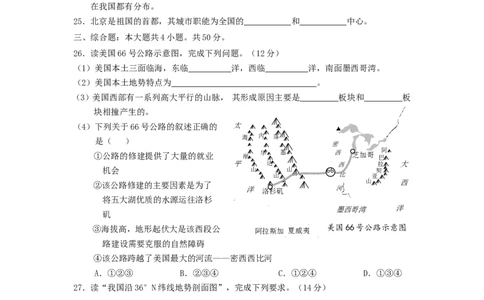 在我国都有分布。
25．北京是祖国的首都，其城市职能为全国的________和________中心。
三、综合题：本大题共4小题。共50分。
26．读美国66号公路示意图，完成下列问题。（12分）
（1）美国本土三面临海，东临________洋，西临________洋，南面墨西哥湾。
（2）美国本土地势特点为________________。
（3）美国西部有一系列高大平行的山脉， 其形成原因主要是________板块和________板
块相撞产生的。
（4）下列关于66号公路的叙述正确的
是（  ）
①公路的修建提供了大量的就业
机会
②该公路修建的主要因素是为了
将五大湖优质的水源运往洛杉
矶
③海拔高，地形起伏大是该西段公
路建设需要克服的自然障碍
④该公路跨越了美国最大的河流——密西西比河
A．①②③  B．②③④  C．①②④  D．①③④
太
平
洋
洛杉矶
66
芝加哥
密
西
西
比
河
大
西
洋
墨西哥湾
阿拉斯加 夏威夷
美国66号公路示意图
27．读“我国沿36°N纬线地势剖面图”，完成下列要求。（14分）